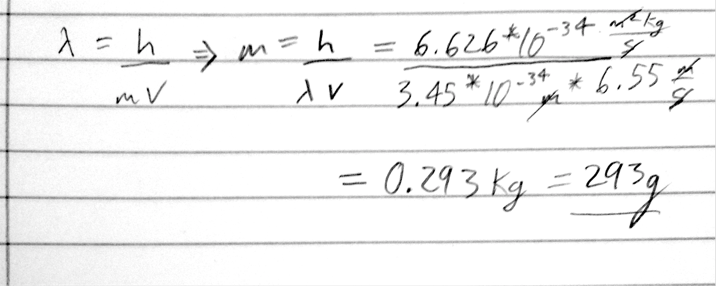 λ = h/mV ⇒ m = h/λV = 6.626*10^-34 m²kg/s / 3.45*10^-34 m * 6.55 m/s
= 0.293 Kg = 293g